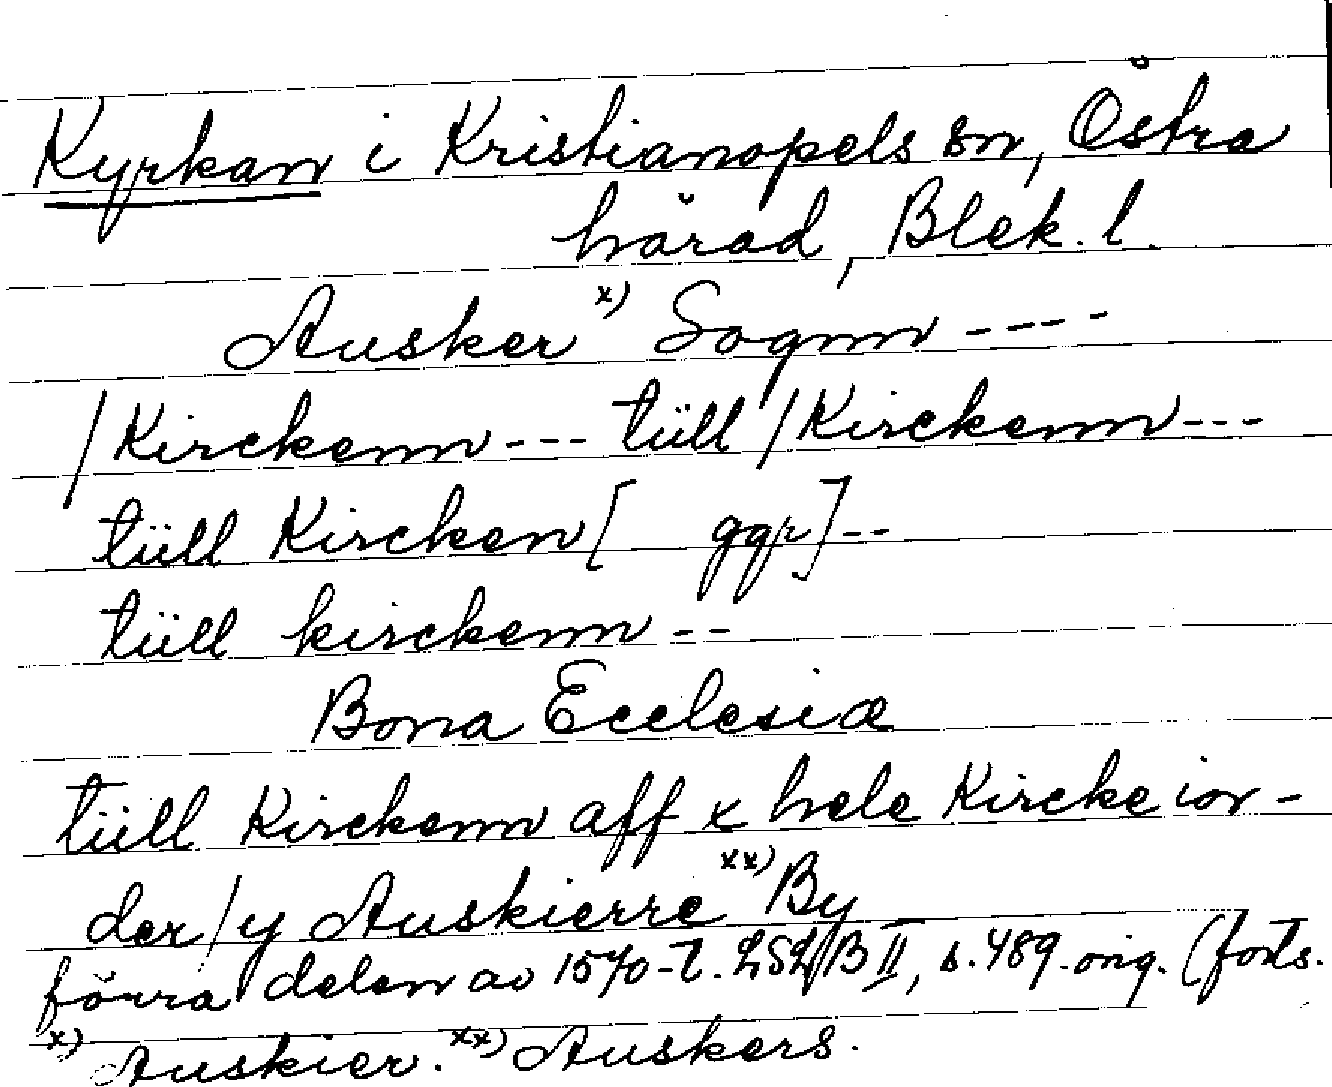 Kyrkan i Kristianopels sn, Östra
härad, Blek. l.
Ausker x) Sognn ----
/Kirckenn --- tüll /Kirckenn ---
tüll Kircken [ ggr] --
tüll kirckenn --
Bona Ecclesiæ
tüll Kirckenn aff x hele Kircke ior-
der /y Auskierre xx) By
förra delen av 1570-t. LSL/B II, s. 489. orig. (forts.
x) Auskier. xx) Auskers.